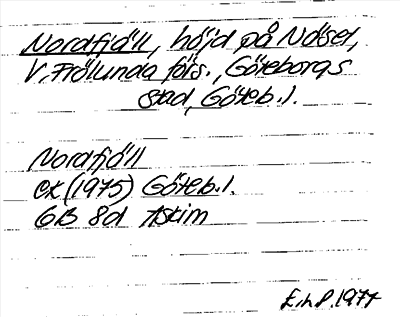 Nordfjäll, höjd på Näset,
V. Frölunda förs., Göteborgs
stad, Göteb. l.
Nordfjäll
ek (1975) Göteb. l.
6B 8d Askim
E.h.P. 1977